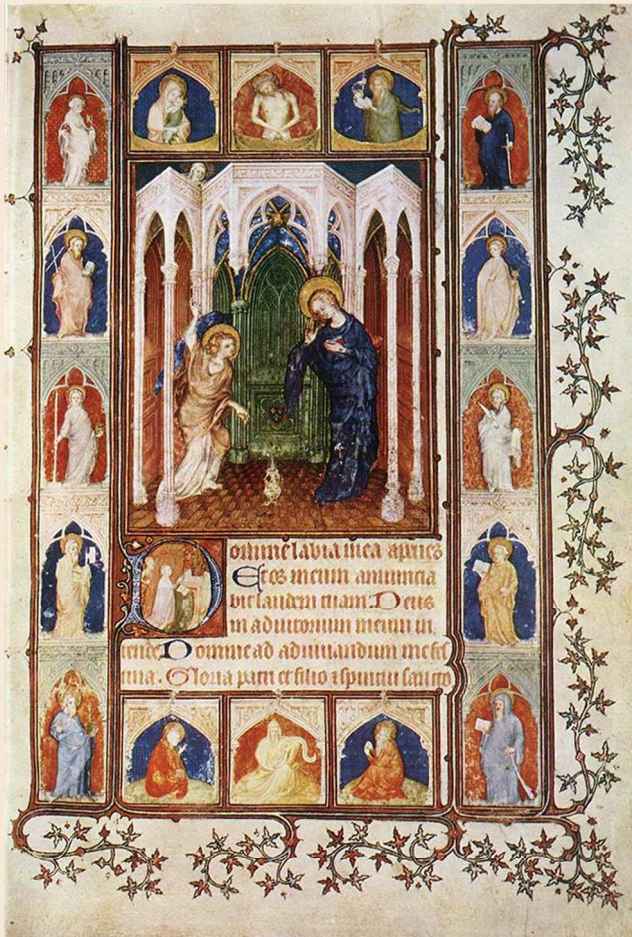 Domine labia mea aperies
Et os meum annuncia
bit laudem tuam Deus
in adiutorium meum in
tende Domine ad adiuuandum me fes
tina. Gloria patri et filio & spiritui sancto